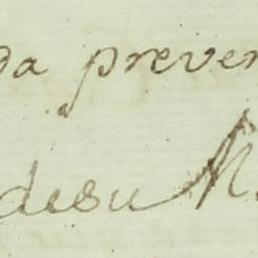 da preven
de su M.